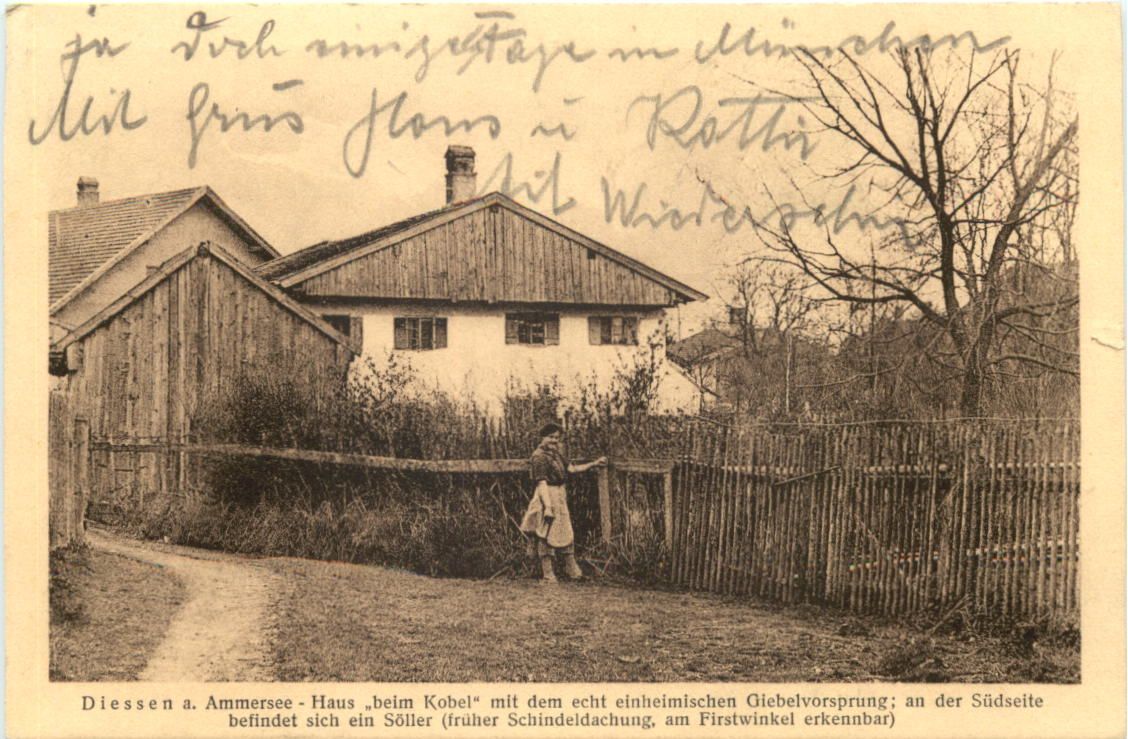 ja doch einige Tage in München
Mit Grus Hans u
Mit Wiedersehn
Diessen a. Ammersee - Haus „beim Kobel“ mit dem echt einheimischen Giebelvorsprung; an der Südseite
befindet sich ein Söller (früher Schindeldachung, am Firstwinkel erkennbar)